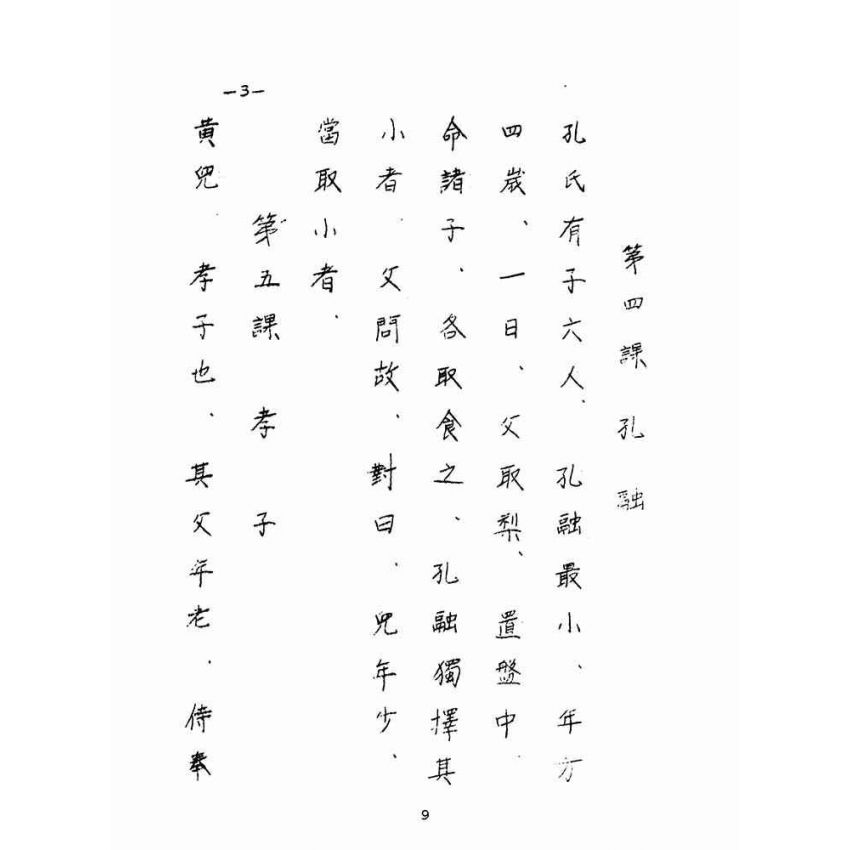 —3—
第四課 孔融
孔氏有子六人、孔融最小、年方
四歲、一日、父取梨、置盤中、
命諸子、各取食之、孔融獨擇其
小者、父問故、對曰、兒年少、
當取小者、
第五課 孝子
黃兒、孝子也、其父年老、侍奉
9